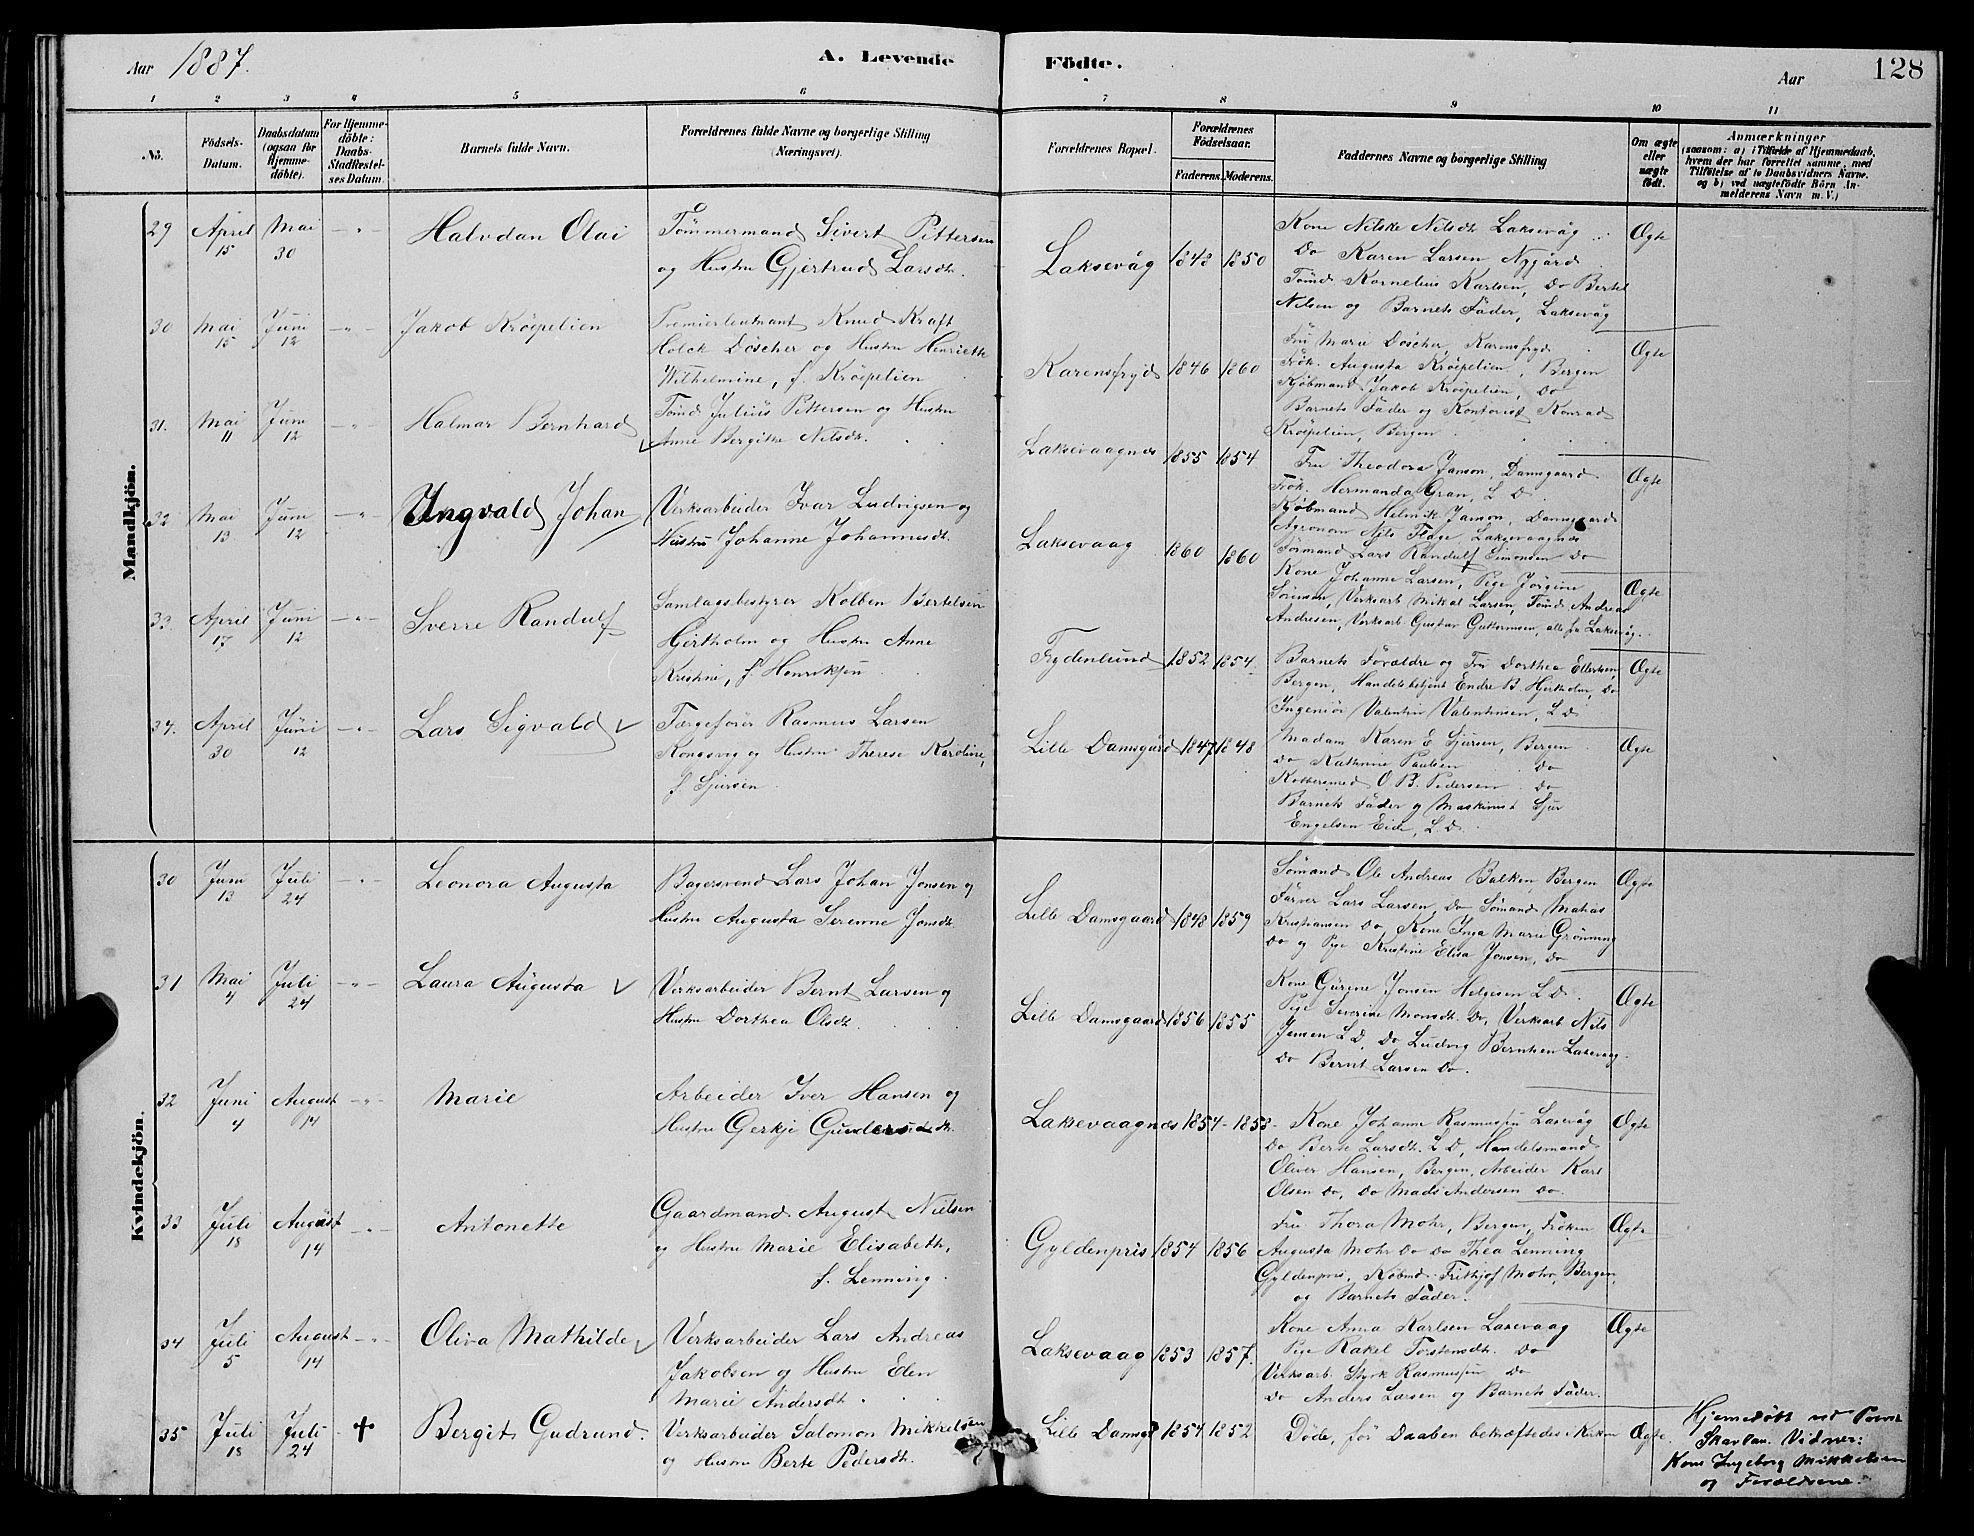 Aar 1887.
A. Levende Födte.
Aar
128
1 2 3 4 5 6 7 8 9 10 11
No.
Födsels-
Datum.
Daabsdatum
(ogsaa for
Hjemme-
döbte).
For Hjemme-
döbte:
Daabs-
Stadfæstel-
ses Datum.
Barnets fulde Navn.
Forældrenes fulde Navne og borgerlige Stilling
(Næringsvei).
Forældrenes Bopæl.
Forældrenes
Födselsaar.
Faderens. Moderens.
Faddernes Navne og borgerlige Stilling
Om ægte
eller
uægte
födt.
Anmærkninger
(saasom: a) i Tilfælde af Hjemmedaab,
hvem der har forrettet samme, med
Tilföielse af to Daabsvidners Navne.
og b) ved uægtefödte Börn An-
melderens Navn m. V.)
Mandkjön.
29 April 15 Mai 30 - " - Halvdan Olai
Tömmermand Sivert Pettersen
og Hustru Gjertrud Larsdtr.
Laksevåg 1848 1850
Kone Nilske Nilsdtr Laksevåg
Do Karen Larsen Nygård
Tömd Kornelius Karlsen, Do Bertel
Nilsen og Barnets Fader, Laksevåg
Ægte
30 Mai 15 Juni 12 - " - Jakob Kröepelien
Premierleutnant Knud Kraft
Holck Döscher og Hustru Henriette
Wilhelmine, f. Kröepelien
Karensfryd 1846 1860
Fru Marie Döscher, Karensfryd
Frök. Augusta Kröepelien, Bergen
Kjöbmand Jakob Kröepelien, Do
Barnets Fader og Kontorist Konrad
Kröepelien, Bergen
Ægte
31. Mai 11 Juni 12 - " - Halmar Bernhard
Tömd Julius Pettersen og Hustru
Anne Bergitte Nilsdtr.
Laksevaagnes 1855 1854
Fru Theodora Janson, Damsgaard
Frök. Hermanda Gran, L D.
Kjöbmand Helmik Janson, Damsgaard
Agronom Nils Flage, Laksevaagnes
Formand Lars Randulf Simonsen Do
Ægte
32 Mai 13 Juni 12 - " - Yngvald Johan
Verksarbeider Ivar Ludvigsen og
Hustru Johanne Johannesdtr.
Laksevaag 1860 1860
Kone Johanne Larsen, Pige Jörgine
Sörensen, Verksarb Mikal Larsen, Tömd Andreas
Andresen, Verksarb. Gustav Guttormsen, alle fra Laksevåg.
Ægte
33. April 17 Juni 12 - " - Sverre Randulf
Samlagsbestyrer Kolben Bertelsen
Hertholm og Hustru Anne
Kristine, f. Henriksen
Frydenlund 1852 1854
Barnets Forældre og Fru Dorthea Ellertsen,
Bergen, Handelsbetjent Endre B. Hertholm, Do
Ingeniör Valentin Valentinsen, L D.
Ægte
34. April 30 Juni 12 - " - Lars Sigvald
Færgeförer Rasmus Larsen
Kongsvig og Hustru Therese Karoline,
f Sjursen
Lille Damsgård 1847 1848
Madam Karen E Sjursen, Bergen
do Kathrine Paulsen Do
Kobbersmed O B. Pedersen Do
Barnets Fader og Maskinist Sjur
Engelsen Eide, L D.
Ægte
Kvindekjön.
30 Juni 13 Juli 24 - " - Leonora Augusta
Bagersvend Lars Johan Jonsen og
Hustru Augusta Serenne Jonsdtr.
Lille Damsgaard 1848 1859
Sömand Ole Andreas Balken, Bergen
Farver Lars Larsen, Do Sömand Matias
Kristiansen Do, Kone Inga Marie Grönning
Do og Pige Kristine Elisa Jonsen, Do
Ægte
31 Mai 4 Juli 24 - " - Laura Augusta
Verksarbeider Bernt Larsen og
Hustru Dorthea Olsdtr.
Lille Damsgaard 1856 1855
Kone Gurine Jonsen Helgesen L D.
Pige Severine Monsdtr. Do, Verksarb Nils
Jensen L D, Do Ludvig Berntsen Laxevaag
Do Bernt Larsen Do.
Ægte
32 Juni 4 August 14 - " - Marie
Arbeider Iver Hansen og
Hustru Gerkje Gundersdtr.
Laksevaagnæs 1854 - 1853
Kone Johanne Rasmussen Laxevåg
Do Berte Larsdtr. L D, Handelsmand
Oliver Hansen, Bergen, Arbeider Karl
Olsen Do, Do Mads Andersen Do.
Ægte
33 Juli 18 August 14 - " - Antonette
Gaardmand August Nielsen
og Hustru Marie Elisabeth,
f. Lenning.
Gyldenpris 1854 1856
Fru Thora Mohr, Bergen, Fröken
Augusta Mohr Do Do Thea Lenning
Gyldenpris, Kjöbmd. Frithjof Mohr, Bergen,
og Barnets Fader.
Ægte
34 Juli 5 August 14 - " - Oliva Mathilde
Verksarbeider Lars Andreas
Jakobsen og Hustru Elen
Marie Andersdtr.
Laksevaag 1853 1857.
Kone Anna Karlsen Laxevaag
Pige Rakel Torstensdtr. Do
Verksarb. Styrk Rasmussen Do
Do Anders Larsen og Barnets Fader.
Ægte
35 Juli 18 Juli 24 + Bergit Gudrund.
Verksarbeider Salomon Mikkelsen
og Hustru Berte Pedersdtr.
Lille Damsgd 1854 1852
Döde, för Daaben bekræftedes i Kirken
Ægte.
Hjemedöbt ved
Skavlan. Vidner:
Kone Ingeborg Mikkelsen
og Forældrene.